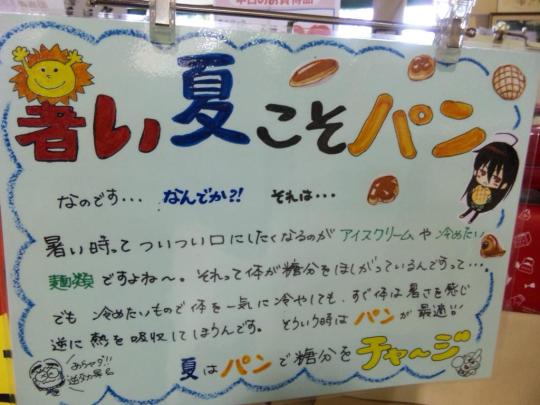 本日のお買得品
暑い夏こそパン
なのです… なんでか?! それは…
暑い時ってついつい口にしたくなるのがアイスクリームや冷めたい
麺類ですよね〜。それって体が糖分をほしがっているんですって…。
でも 冷めたいもので体を一気に冷やしても、すぐ体は暑さを感じ
逆に熱を吸収してしまうんです。そういう時はパンが最適!!
夏はパンで糖分をチャ〜ジ
あらヤダ!!
逆効果ね